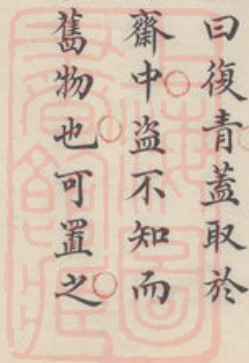 曰復青蓋取於
齋中盜不知而
舊物也可置之